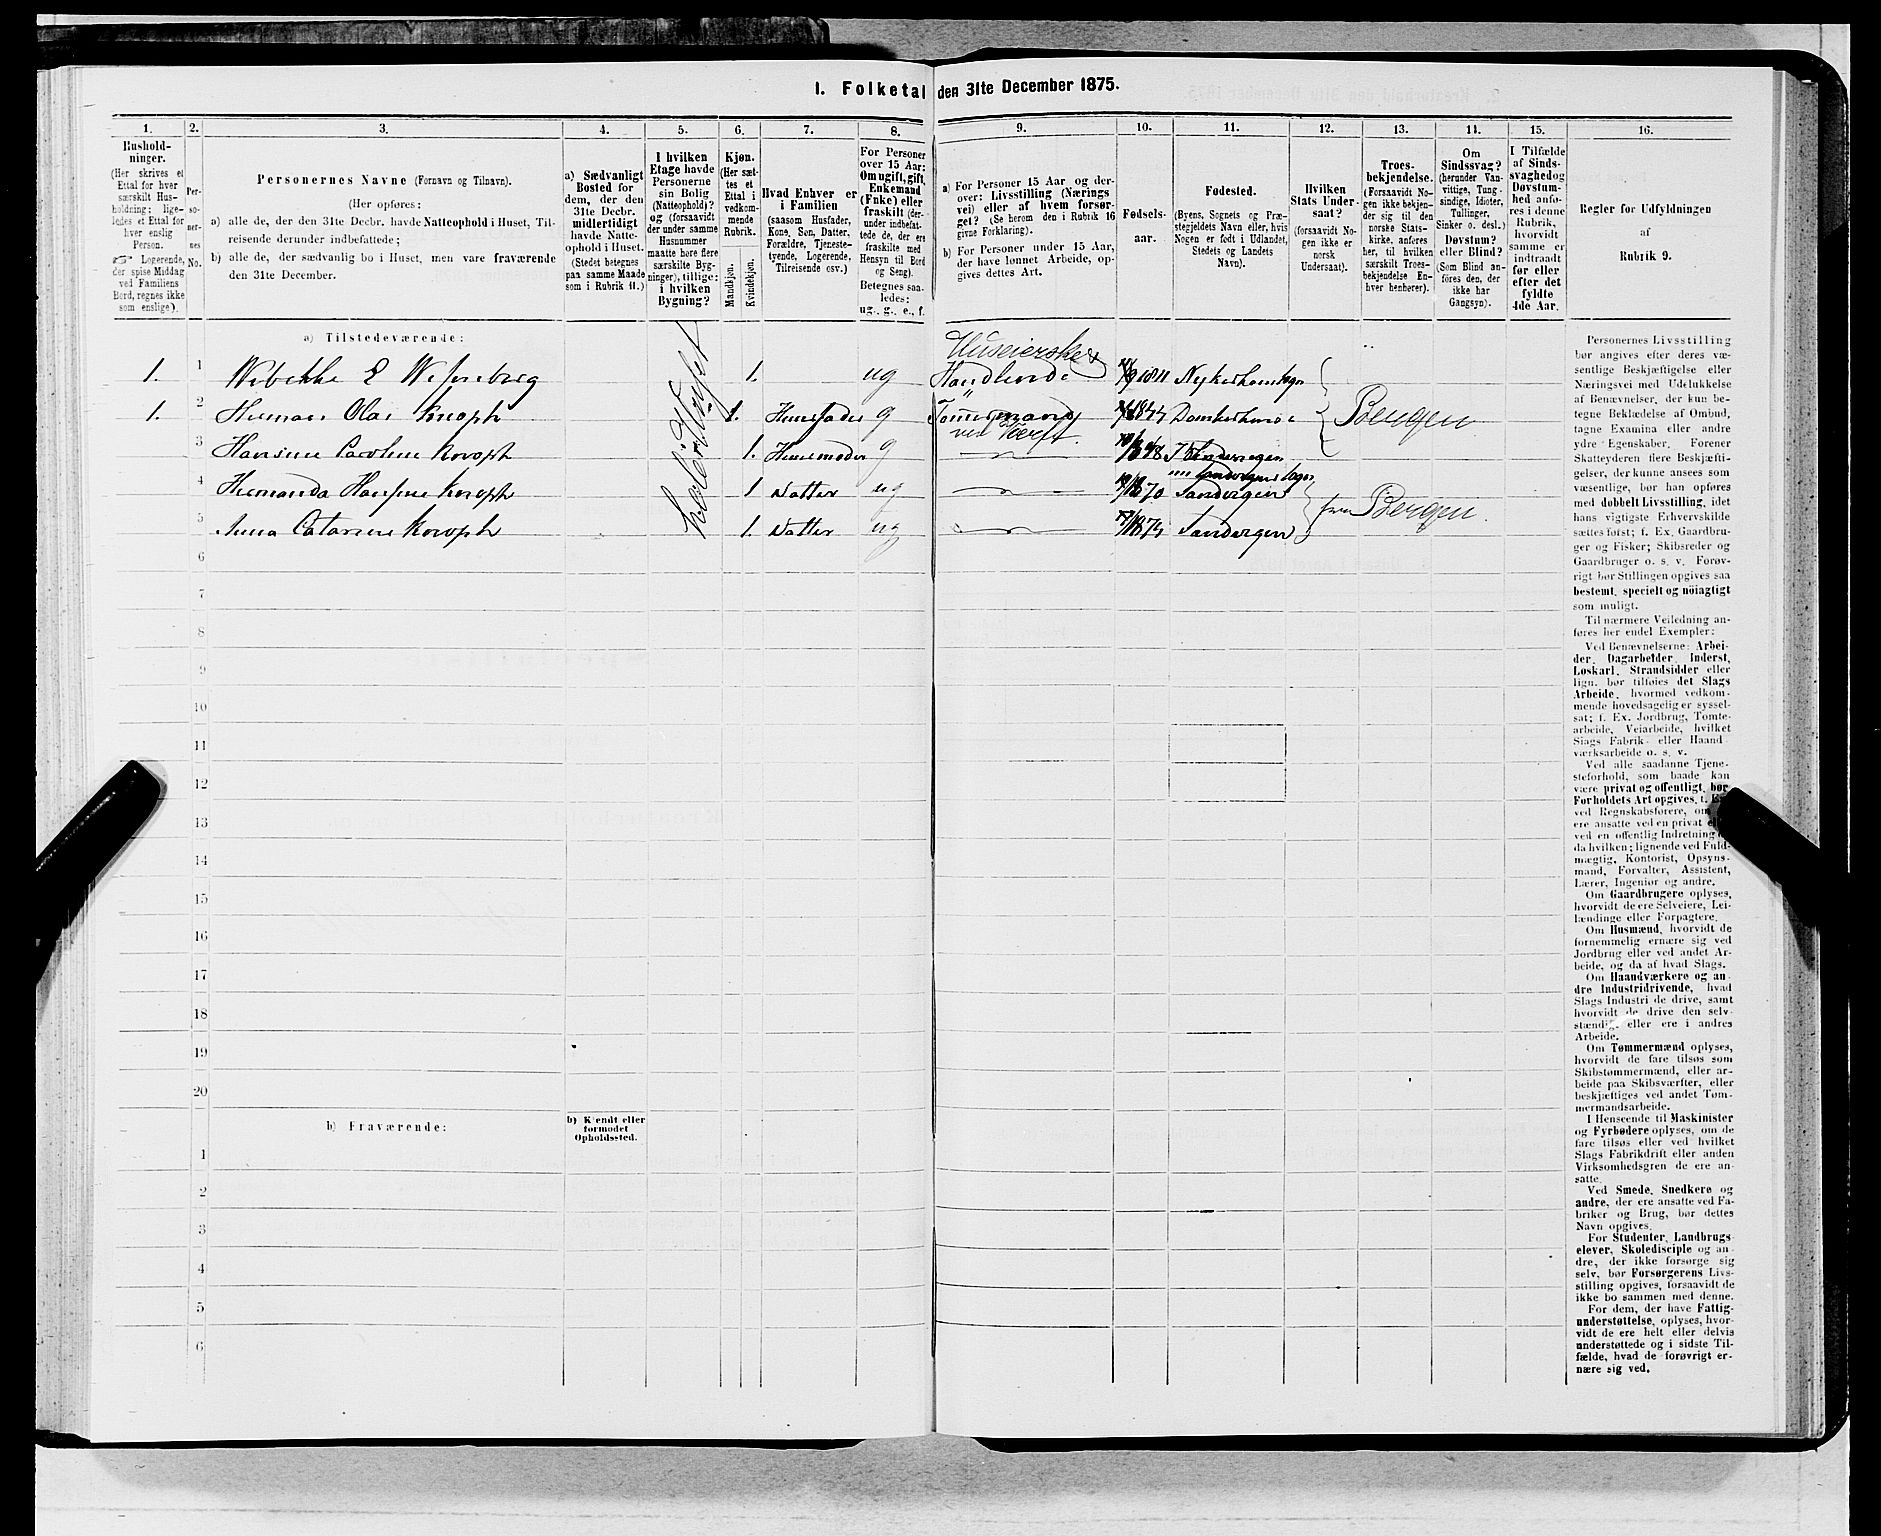 1. Folketal den 31te December 1875.
1.
Hushold-
ninger.
(Her skrives et
Ettal for hver
særskilt Hus-
holdning; lige-
ledes et Ettal for
hver enslig
Person.
☞ Logerende,
der spise Middag
ved Familiens
Bord, regnes ikke
som enslige).
2.
Per-
so-
ner-
nes
No.
3.
Personernes Navne (Fornavn og Tilnavn).
(Her opføres:
a) alle de, der den 31te Decbr. havde Natteophold i Huset, Til-
reisende derunder indbefattede;
b) alle de, der sædvanlig bo i Huset, men vare fraværende
den 31te December.
4.
a) Sædvanligt
Bosted for
dem, der den
31te Decbr.
midlertidigt
havde Natte-
ophold i Huset.
(Stedet betegnes
paa samme Maade
som i Rubrik 11.)
5.
I hvilken
Etage havde
Personerne
sin Bolig
(Natteophold)?
og (forsaavidt
der under samme
Husnummer
maatte høre flere
særskilte Byg-
ninger), tillige:
i hvilken
Bygning?
6.
Kjøn.
(Her sæt-
tes et
Ettal i
vedkom-
mende
Rubrik.
Mandkjøn.
Kvindekjøn.
7.
Hvad Enhver er
i Familien
(saasom Husfader,
Kone, Søn, Datter,
Forældre, Tjeneste-
tyende, Logerende,
Tilreisende osv.)
8.
For Personer
over 15 Aar:
Om ugift, gift,
Enkemand
(Enke) eller
fraskilt (der-
under indbefat-
tede de, der ere
fraskilte med
Hensyn til Bord
og Seng).
Betegnes saa-
ledes:
ug., g., e., f.
9.
a) For Personer 15 Aar og der-
over: Livsstilling (Nærings-
vei) eller af hvem forsør-
get? (Se herom den i Rubrik 16
givne Forklaring).
b) For Personer under 15 Aar,
der have lønnet Arbeide, op-
gives dettes Art.
10.
Fødsels-
aar.
11.
Fødested.
(Byens, Sognets og Præ-
stegjeldets Navn eller, hvis
Nogen er født i Udlandet,
Stedets og Landets
Navn).
12.
Hvilken
Stats Under-
saat?
(forsaavidt No-
gen ikke er
norsk
Undersaat).
13.
Troes-
bekjendelse.
(Forsaavidt No-
gen ikke bekjen-
der sig til den
norske Stats-
kirke, anføres
her, til hvilken
særskilt Troes-
bekjendelse En-
hver henhører).
14.
Om
Sindssvag?
(herunder Van-
vittige, Tung-
sindige, Idioter,
Tullinger,
Sinker o. desl.)
Døvstum?
eller Blind?
(Som Blind an-
føres den, der
ikke har
Gangsyn).
15.
I Tilfælde
af Sinds-
svaghed og
Døvstum-
hed anfø-
res i denne
Rubrik,
hvorvidt
samme er
indtraadt
før eller
efter det
fyldte
4de Aar.
16.
Regler for Udfyldningen
af
Rubrik 9.
a) Tilstedeværende:
Huseierske &
1. 1 Wibekke E 1. ug Handlende 1811 Nykirkens sogn
1. 2 Herman Olai Knoph 1. Huusfader g Tømmermand 1844 Domkirkens Bergen
ved Værft
3 Hansine Caroline Knoph 1. Huusmoder g
4 Hermanda Hansine Knoph 1 Datter ug 1870 Sandvigen
5 Anna Catarine Knoph 1. Datter ug 1875 Sandvigen Bergen.
6
7
8
9
10
11
12
13
14
15
16
17
18
19
20
b) Fraværende:
b) Kjendt eller
formodet
Opholdssted.
1
2
3
4
5
6
Personernes Livsstilling
bør angives efter deres væ-
sentlige Beskjæftigelse eller
Næringsvei med Udelukkelse
af Benævnelser, der kun be-
tegne Beklædelse af Ombud,
tagne Examina eller andre
ydre Egenskaber. Forener
Skatteyderen flere Beskjæfti-
gelser, der kunne ansees som
væsentlige, bør han opføres
med dobbelt Livsstilling, idet
hans vigtigste Erhvervskilde
sættes først; f. Ex. Gaardbru-
ger og Fisker; Skibsreder og
Gaardbruger o. s. v. Forøv-
rigt bør Stillingen opgives saa
bestemt, specielt og nöiagtigt
som muligt.
Til nærmere Veiledning an-
føres her endel Exempler:
Ved Benævnelserne: Arbei-
der, Dagarbeider, Inderst,
Løskarl, Strandsidder eller
lign. bør tilføies det Slags
Arbeide, hvormed vedkom-
mende hovedsagelig er syssel-
sat; f. Ex. Jordbrug, Tomte-
arbeide, Veiarbeide, hvilket
Slags Fabrik- eller Haand-
værksarbeide o. s. v.
Ved alle saadanne Tjene-
steforhold, som baade kan
være privat og offentligt, bør
Forholdets Art opgives, f.
ved Regnskabsførere, om
ere ansatte ved en privat
ved en offentlig Indretning
da hvilken; lignende ved Fuld-
mægtig, Kontorist, Opsyns-
mand, Forvalter, Assistent,
Lærer, Ingeniør og andre.
Om Gaardbrugere oplyses,
hvorvidt de ere Selveiere, Lei-
lændinge eller Forpagtere.
Om Husmænd, hvorvidt de
fornemmelig ernære sig ved
Jordbrug eller ved andet Ar-
beide, og da af hvad Slags.
Om Haandværkere og an-
dre Industridrivende, hvad
Slags Industri de drive, samt
hvorvidt de drive den selv-
stændig, eller ere i andres
Arbeide.
Om Tømmermænd oplyses,
hvorvidt de fare tilsøs som
Skibstømmermænd, eller ar-
beide paa Skibsværfter, eller
beskjæftiges ved andet Tøm-
mermandsarbeide.
I Henseende til Maskinister
og Fyrbødere oplyses, om de
fare tilsøs eller ved hvilket
Slags Fabrikdrift eller anden
Virksomhedsgren de ere an-
satte.
Ved Smede, Snedkere og
andre, der ere ansatte ved Fa-
briker og Brug, bør dettes
Navn opgives.
For Studenter, Landbrugs-
elever, Skoledisciple og an-
dre, der ikke forsørge sig
selv, bør Forsørgerens Livs-
stilling opgives, forsaavidt de
ikke bo sammen med denne.
For dem, der have Fattig-
understøttelse, oplyses, hvor-
vidt de ere helt eller delvis
understøttede og i sidste Til-
fælde, hvad de forøvrigt er-
nære sig ved.